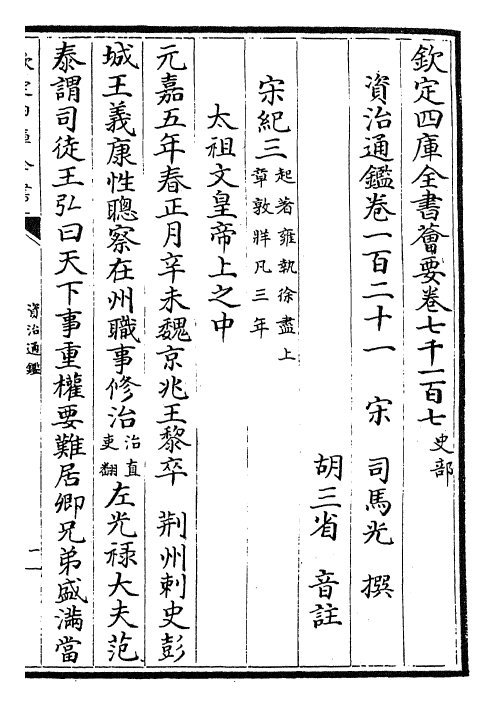 欽定四庫全書薈要卷七千一百七 史部
資治通鑑卷一百二十一 宋 司馬光 撰
胡三省 音註
宋紀三 起著雍執徐盡上章敦牂凡三年
太祖文皇帝上之中
元嘉五年春正月辛未魏京兆王黎卒 荆州刺史彭
城王義康性聰察在州職事修治 治直吏翻 左光祿大夫范
泰謂司徒王弘曰天下事重權要難居卿兄弟盛滿當
資治通鑑